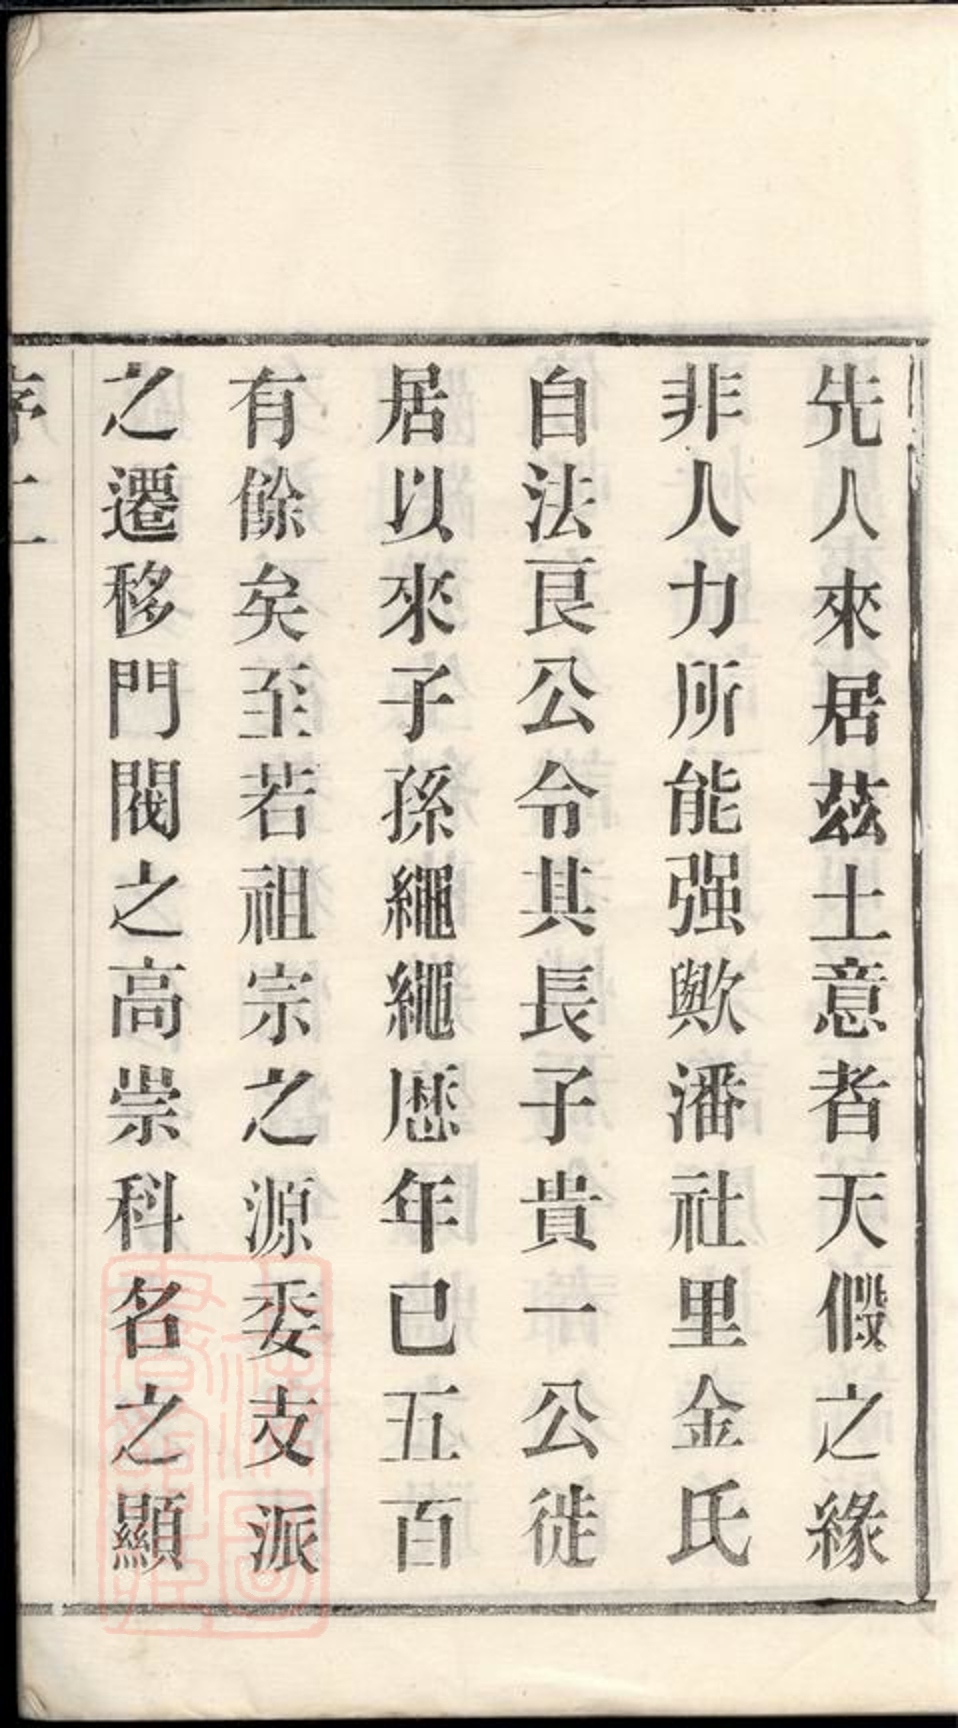 先人來居茲土意者天假之緣
非人力所能强歟潘社里金氏
自法良公令其長子貴一公徙
居以來子孫繩繩歴年已五百
有餘矣至若祖宗之源委支派
之遷移門閥之高崇科名之顯
序 二